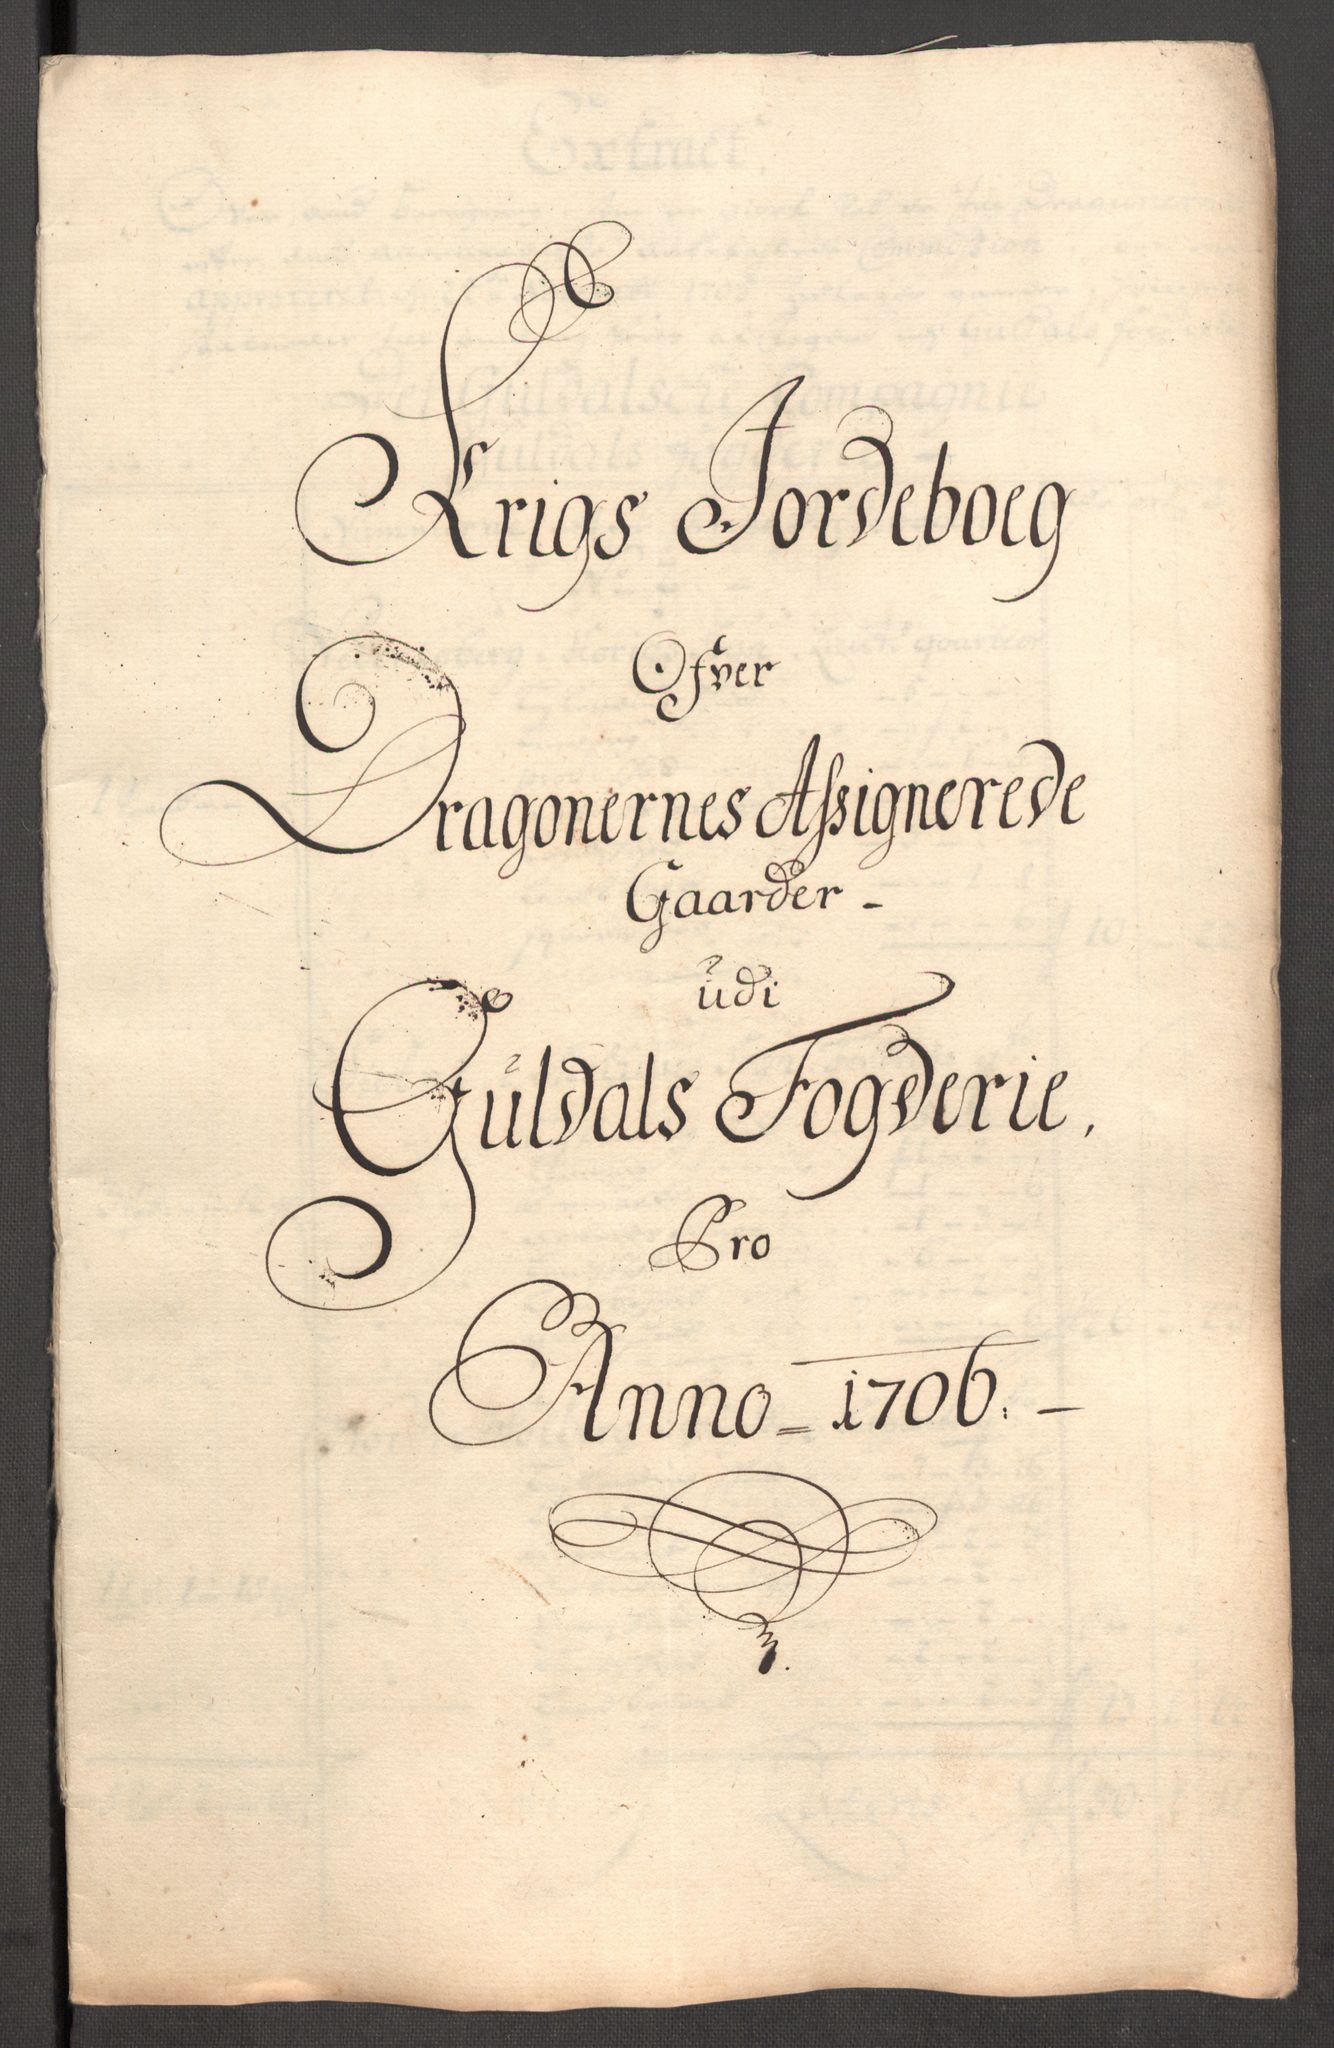 Krigs Jordeboeg
Ofver
Dragonernes Assignerede
Gaarder -
udi
Guldals Fogderie,
Pro
Anno = 1706. -